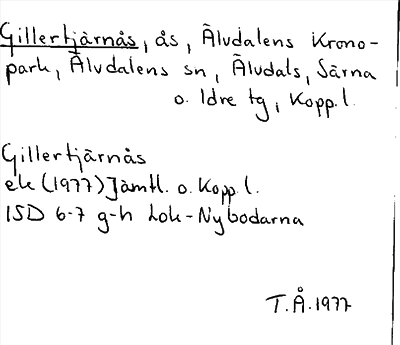 Gillertjärnås, ås, Älvdalens Krono-
park, Älvdalens sn, Älvdals, Särna
o. Idre tg, Kopp.l.
Gillertjärnås
ek (1977) Jämtl. o. Kopp.l.
15D 6-7 g-h Lok-Nybodarna
T.Å.1977